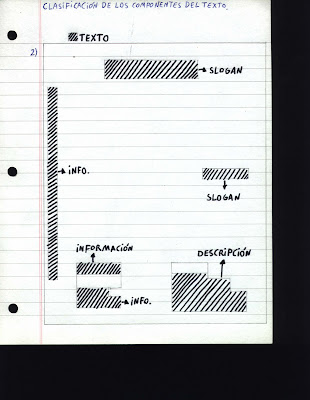 CLASIFICACIÓN DE LOS COMPONENTES DEL TEXTO.
TEXTO
2)
SLOGAN
INFO.
SLOGAN
INFORMACIÓN
DESCRIPCIÓN
INFO.